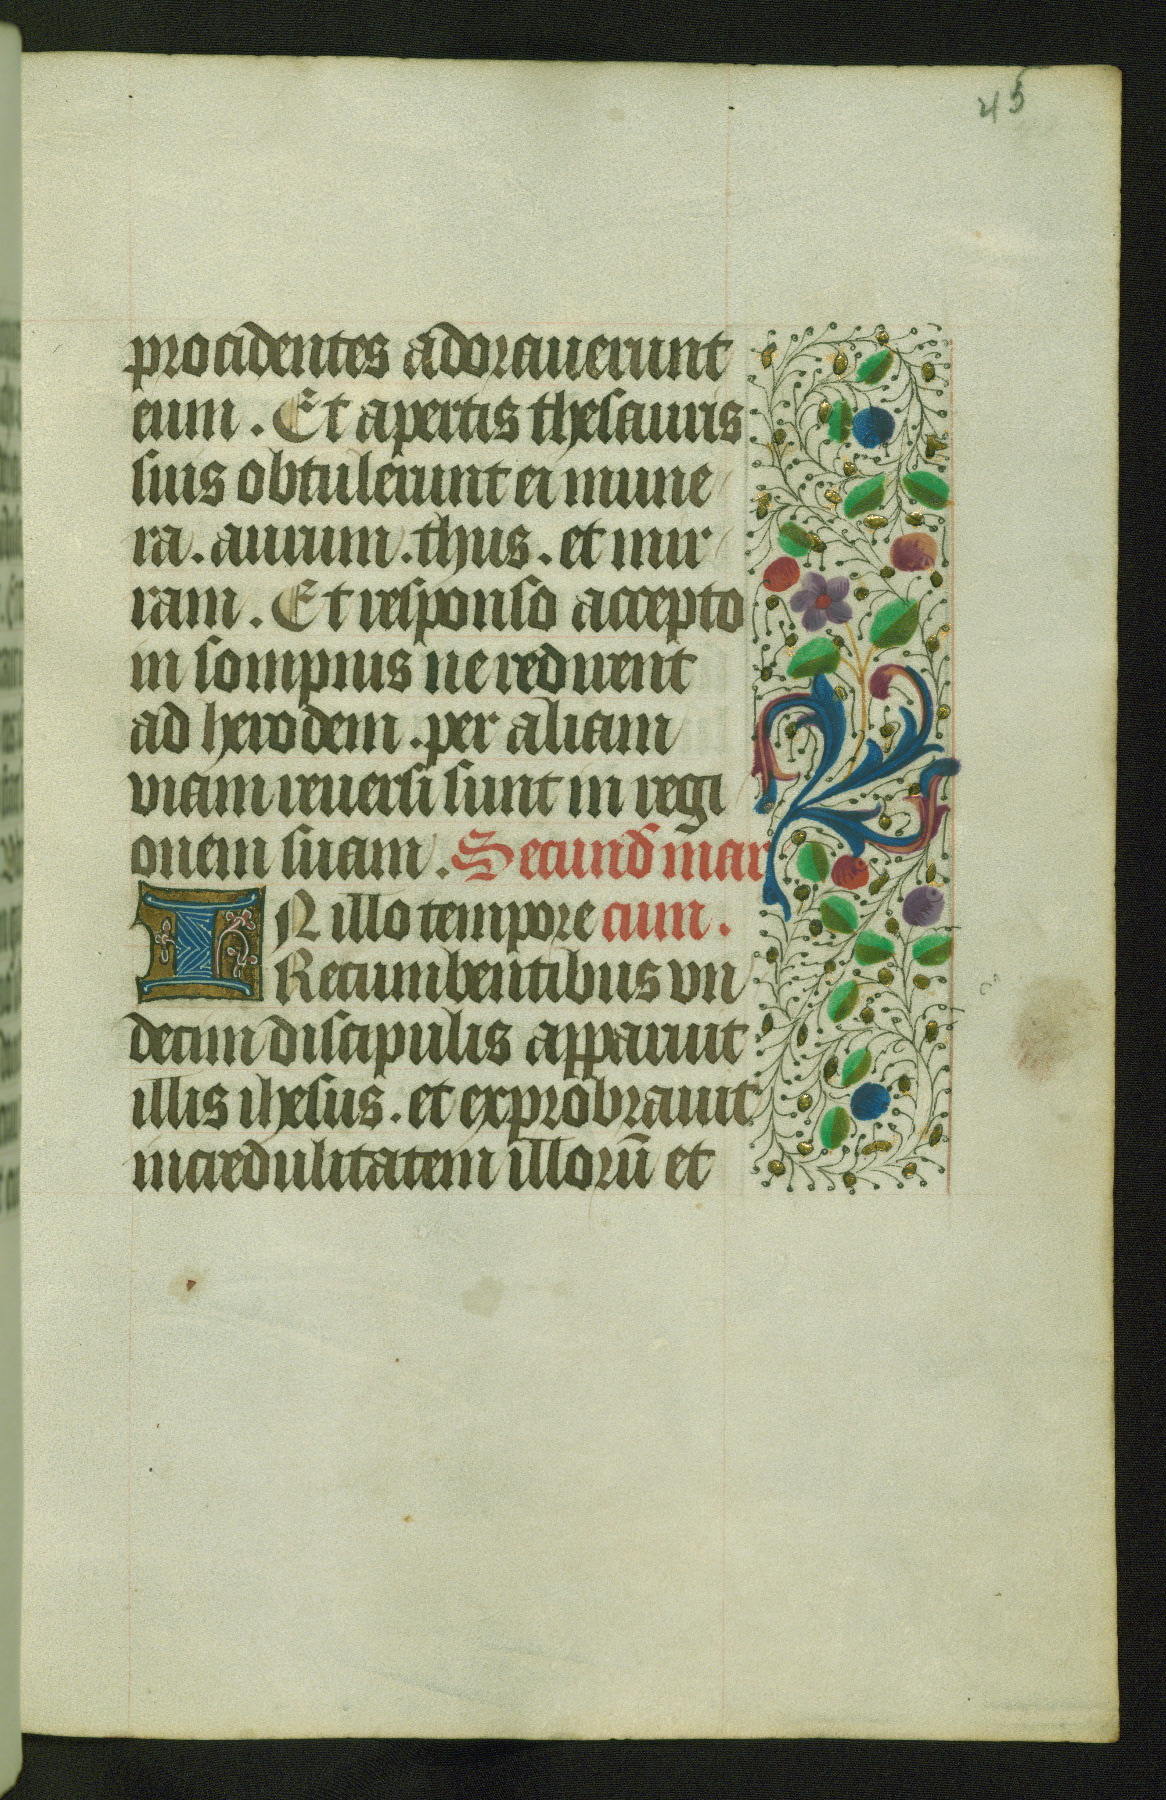 45
procidentes adorauerunt
eum . Et apertis thesauris
suis obtulerunt ei mune
ra . aurum . thus . et mir
ram . Et responso accepto
in sompnis ne redirent
ad herodem . per aliam
viam reuersi sunt in regi
onem suam . Secund mar
IN illo tempore cum .
Recumbentibus vn
decim discipulis apparuit
illis ihesus . et exprobrauit
incredulitatem illorū et